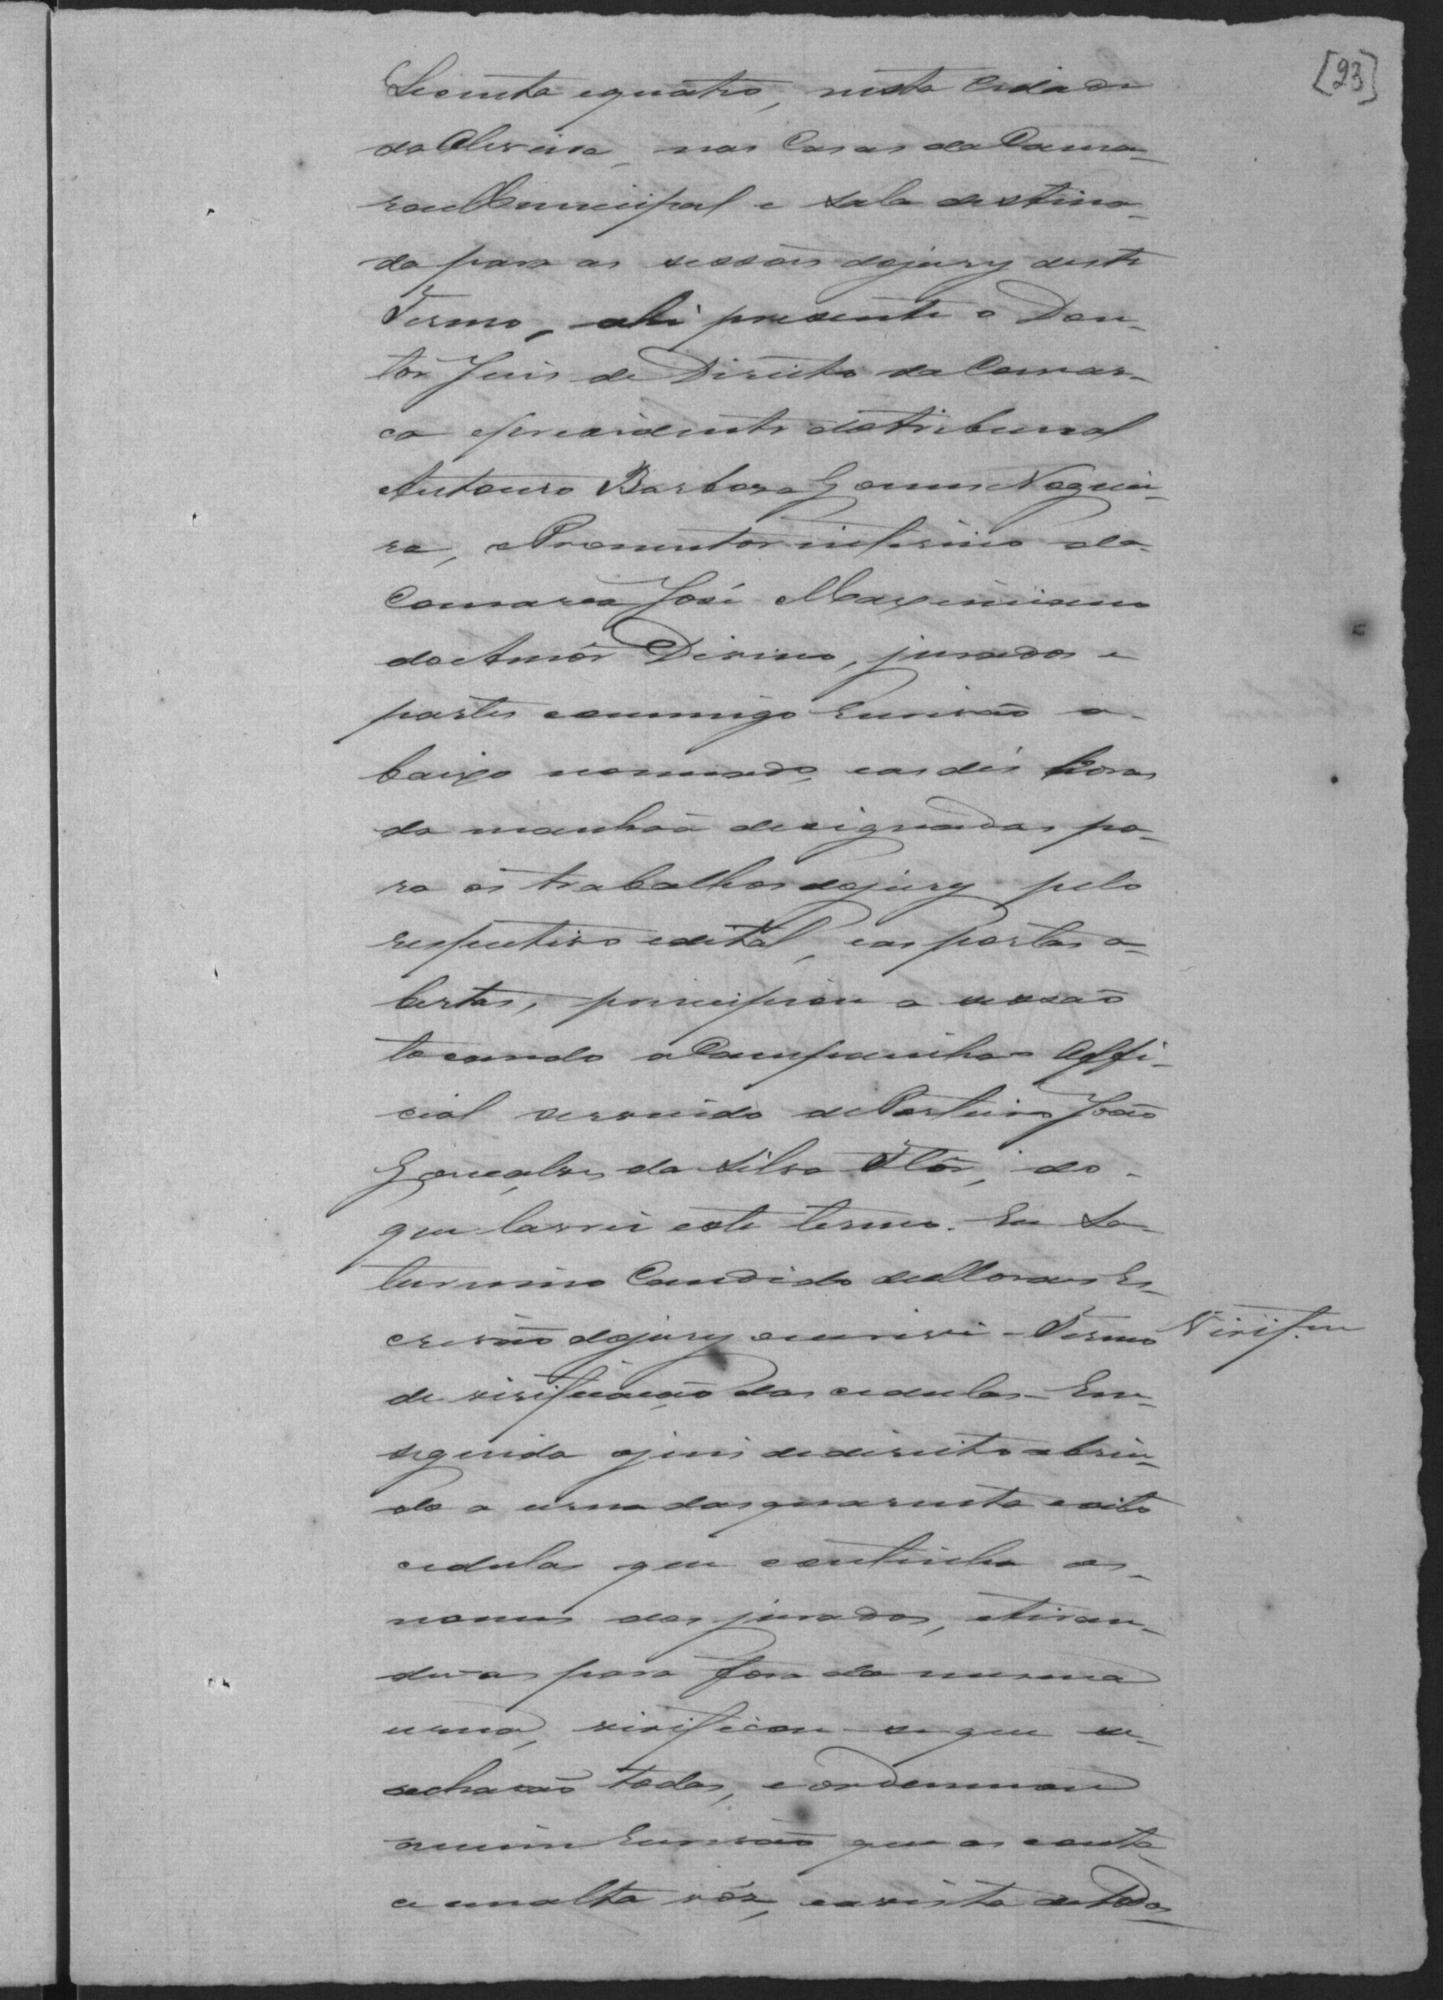 [93]
secenta e quatro, nesta Cidade
da Oliveira, nas Casas da Cama-
ra Municipal e sala destina-
da para as sessões do jury deste
Termo, ahi presente o Dou-
tor Juis de Direito da Comar-
ca e presidente do tribunal
Antonio Barbosa Gomes Noguei-
ra, o Promutor interino da
Comarca José Maximiano
do Amôr Divino, jurados e
partes commigo Escrivão a-
baixo nomeado, e as dés horas
da manhaã designadas pa-
ra os trabalhos do jury pelo
respectivo edital, e as portas a-
bertas, principiou a sessão
tocando a Campainha o Offi-
cial servindo de Porteiro João
Gonçalves da Silva Flôr, do
que lavrei este termo. Eu Sa-
turnino Candido de Moraes Es-
crivão do jury escrivi - Termo
Virif.am
de virificação das cedulas - Em
seguida o juis de direito abrin-
do a urna das quarenta e oito
cedulas que continha os
nomes dos jurados, e tiran-
do-as para fora da mesma
urna, virificou-se que se
achavão todas, e ordenou
a mim Escrivão que as conta
a em alta vóz, e a vista de todos